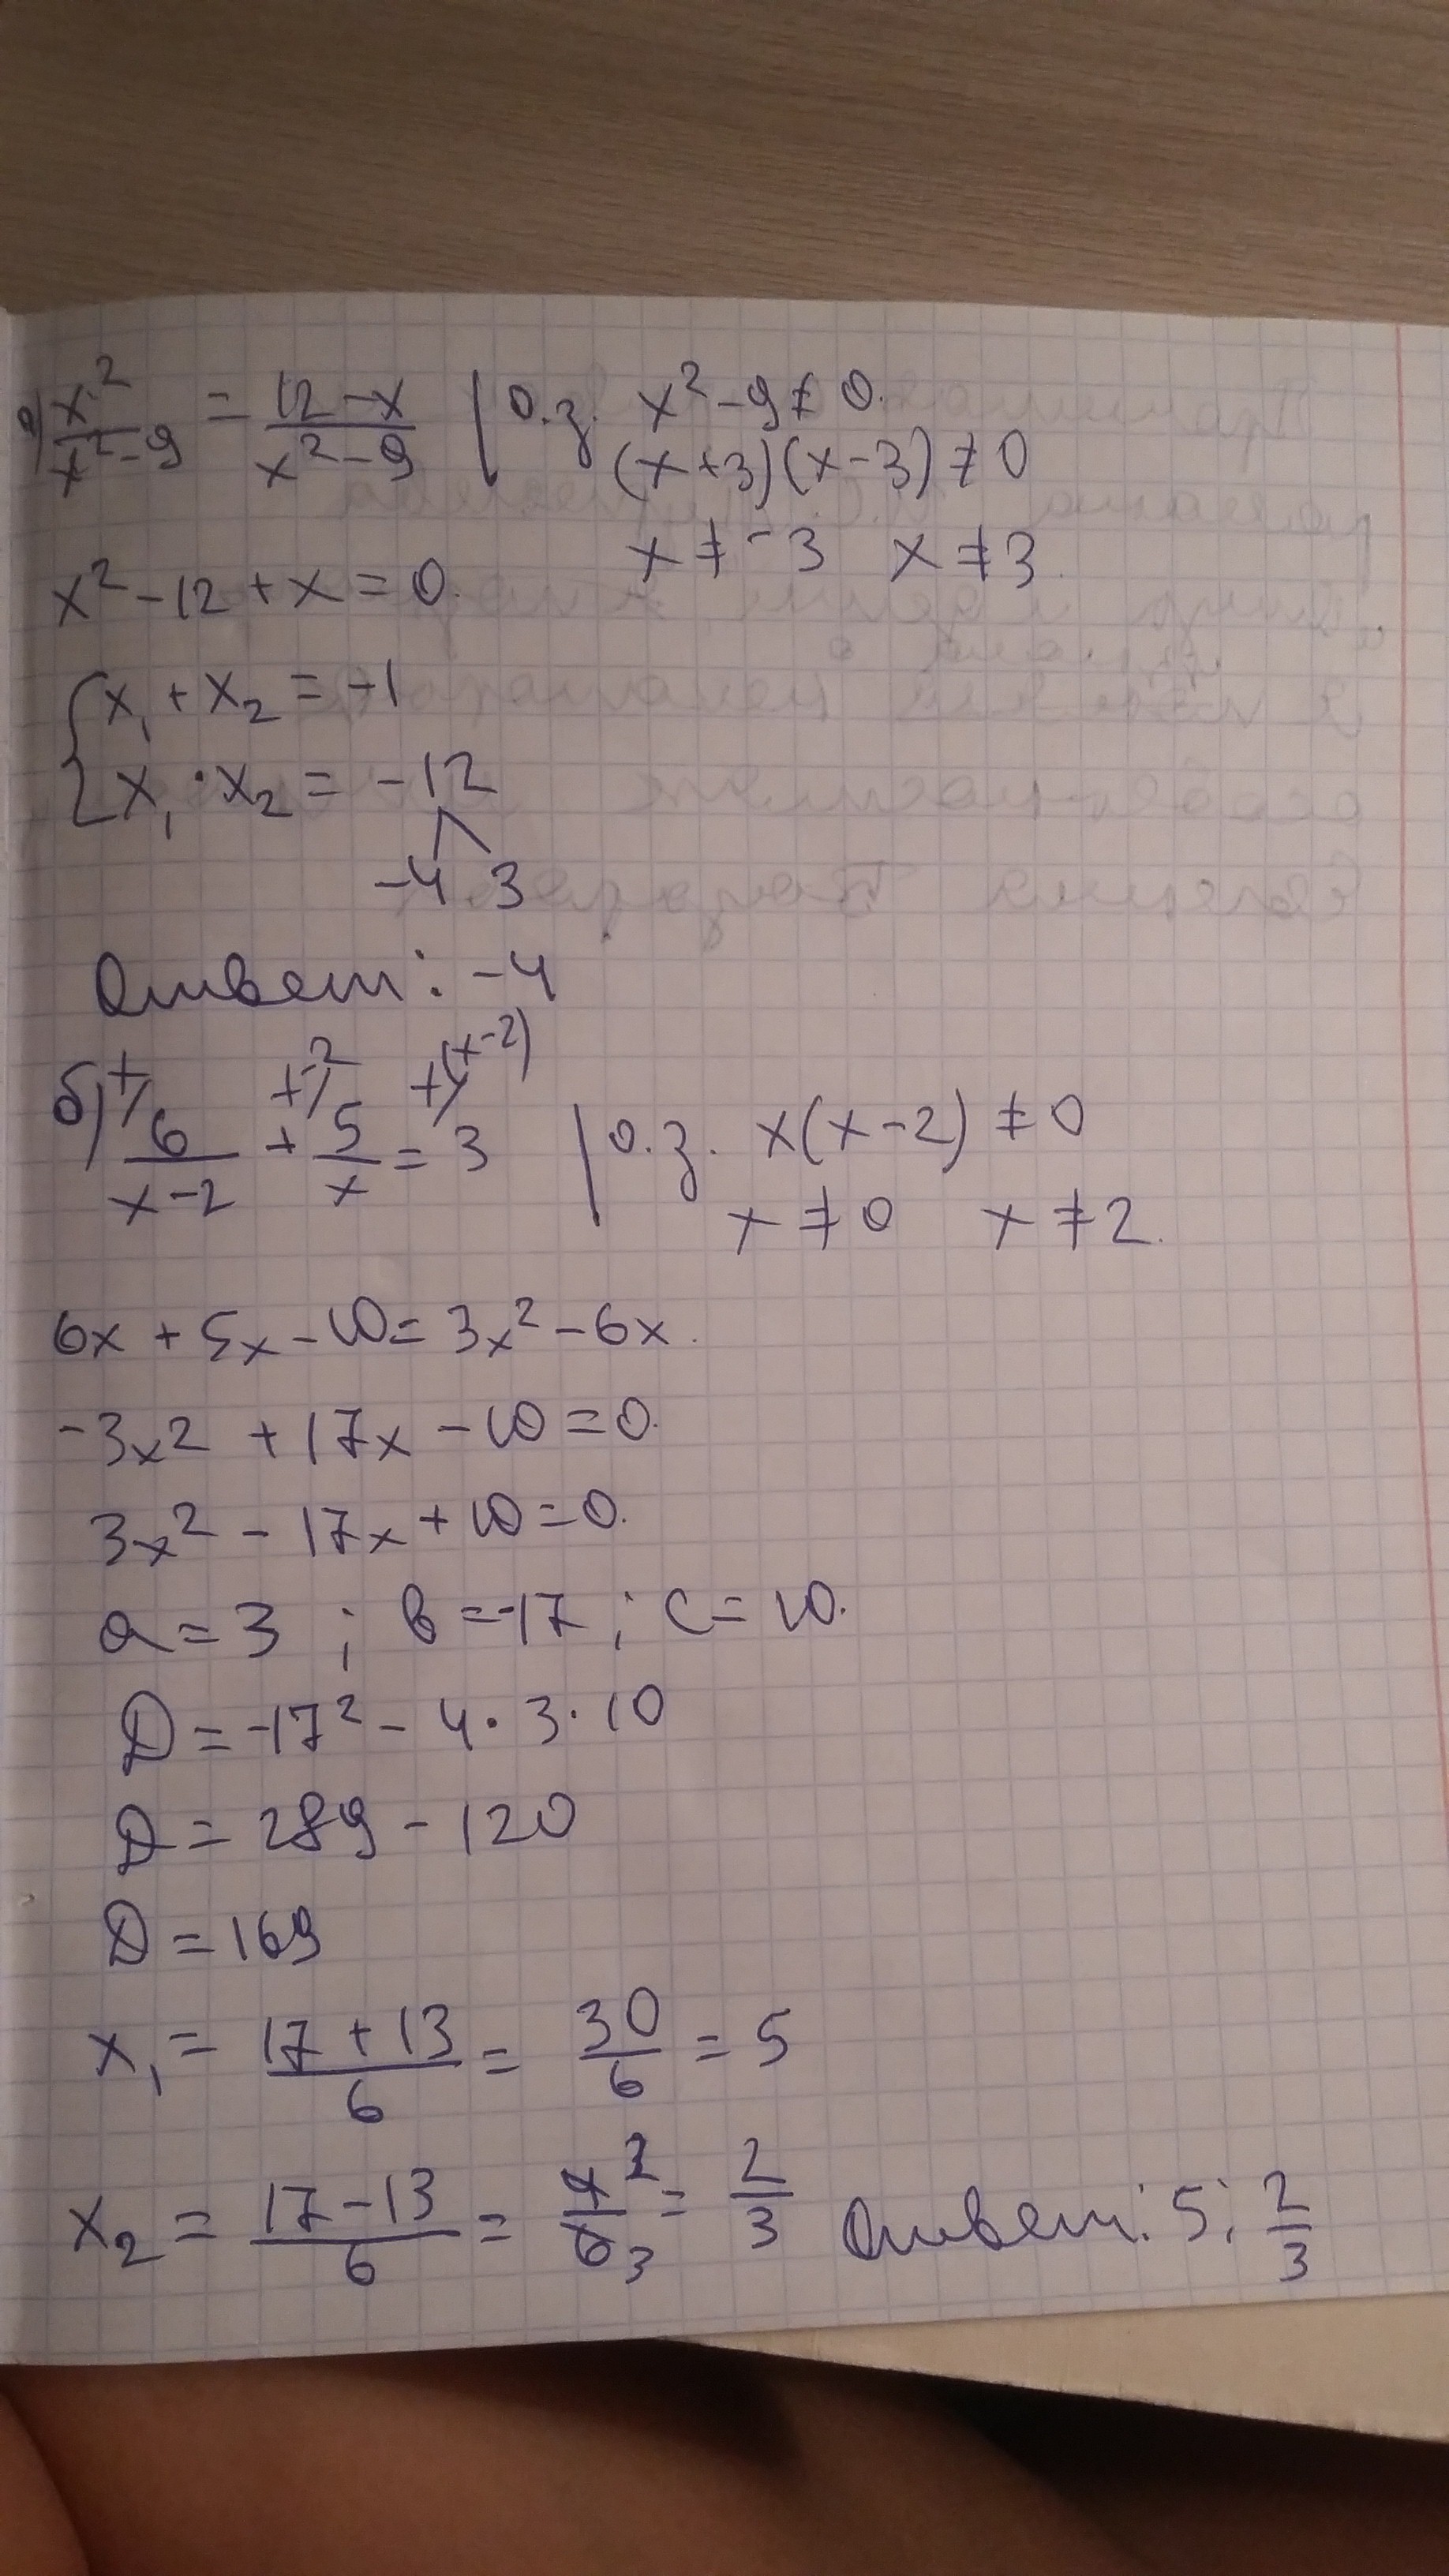 а) x²/(x²-9) = (12-x)/(x²-9) | О.З. x²-9≠0.
(x+3)(x-3)≠0
x≠-3 x≠3.
x²-12+x=0.
{x₁+x₂=-1
x₁·x₂=-12
-4 3
Ответ: -4
б) 6/(x-2) + 5/x = 3 | О.З. x(x-2)≠0
x≠0 x≠2.
6x+5x-10=3x²-6x.
-3x²+17x-10=0.
3x²-17x+10=0.
a=3; b=-17; c=10.
D=-17²-4·3·10
D=289-120
D=169
x₁=(17+13)/6=30/6=5
x₂=(17-13)/6=4/6=2/3 Ответ: 5; 2/3